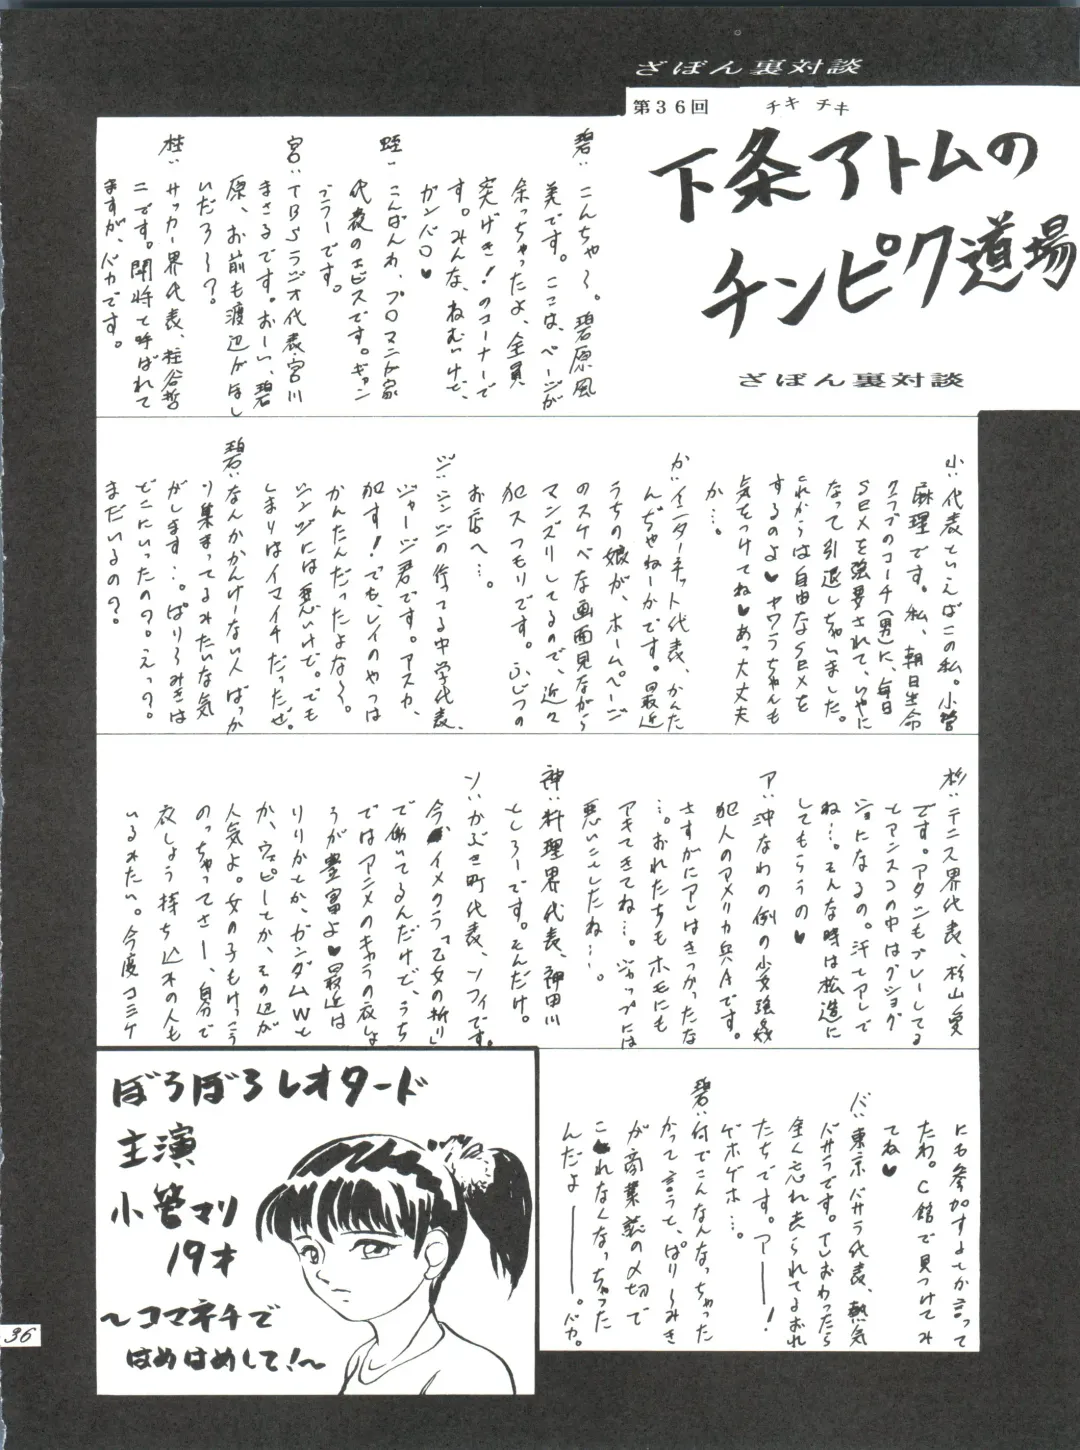 ざぼん裏対談
第36回　チキチキ
下条アトムの
チンピク道場
ざぼん裏対談
碧:こんちゃ〜。碧原風
美です。ここは、ページが
余っちゃったよ、全員
突げき!のコーナーで
す。みんな、ねむいけど、
ガンバロ♥
蛭:こんばんわ、プロマンガ家
代表のエビスです。ギャン
ブラーです。
宮:TBSラジオ代表・宮川
まさるです。おーい、碧
原、お前も渡辺がほし
いだろ〜?
柱:サッカー界代表、柱谷哲
二です。闘将と呼ばれて
ますが、バカです。
小:代表といえばこの私。小菅
麻理です。私、朝日生命
クラブのコーチ(男)に、毎日
SEXを強要されて、いやに
なって引退しちゃいました。
これからは自由なSEXを
するのよ♥ヤワラちゃんも
気をつけてね♥あっ大丈夫
か…。
か:インターネット代表、かんた
んぢゃねーかです。最近
うちの娘が、ホームページ
のスケベな画面見ながら
マンズリしてるので、近々
犯スつもりです。ふじつの
お店へ…。
ジ:シンジの行ってる中学代表、
ジャージ君です。アスカ、
犯す!でも、レイのやつは
かんたんだったよな〜。
シンジには悪いけど。でも
しまりはイマイチだったぜ。
碧:なんかかんけーない人ばっか
り集まってるみたいな気
がします…。ぱり〜みきは
どこにいったの?えっ?
まだいるの?
杉:テニス界代表、杉山愛
です。アタシもプレーしてる
とアンスコの中はグショグ
ショになるの。汗とアレで
ね…。そんな時は松造に
してもらうの♥
ア:沖なわの例の少女強姦
犯人のアメリカ兵Aです。
さすがにアレはきつかったな
…。おれたちもホモにも
アキてきてね…。ジャップには
悪いことしたね…。
神:料理界代表、神田川
としろーです。そんだけ。
ソ:かぶき町代表、ソフィです。
今、イメクラ「乙女の祈り」
で働いてるんだけど、うち
ではアニメのキャラの衣しょ
うが豊富よ♥最近は
りりかとか、ガンダムWと
か、ウェピーとか、その辺が
人気よ。女の子もけっこう
のっちゃってさー、自分で
衣しょう持ち込みの人も
いるみたい。今度コミケ
にも参加するとか言って
たわ。C館で見つけてみ
てね♥
バ:東京バサラ代表、熱気
バサラです。ていおわったら
全く忘れ去られてるおれ
たちです。アー——!
ゲホゲホ…。
碧:何でこんなんなっちゃった
かって言うと、ぱり〜みき
が商業誌の〆切で
これなくなっちゃった
んだよ————。バカ。
ぼろぼろレオタード
主演
小菅マリ
19才
〜コマネチで
はめはめして!〜
36